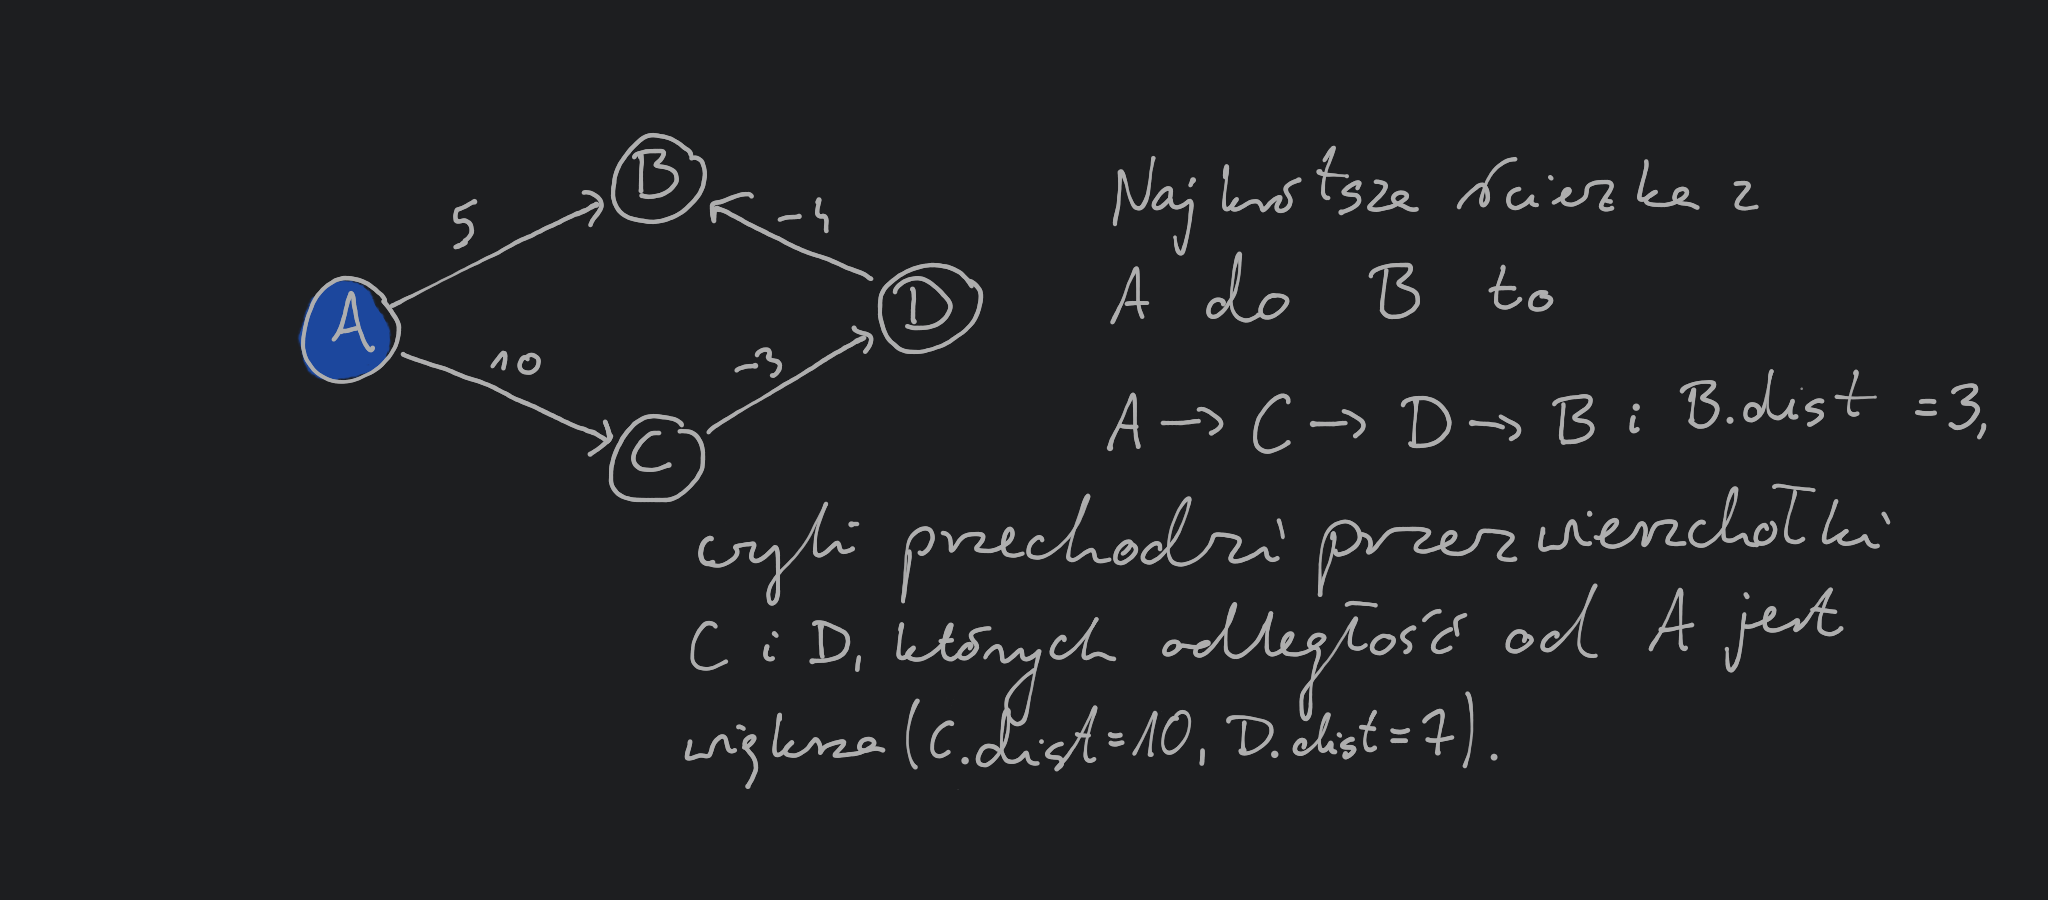 B
5
-4
A
D
10
-3
C
Najkrótsza ścieżka z
A do B to
A → C → D → B i B.dist = 3,
czyli przechodzi przez wierzchołki
C i D, których odległość od A jest
większa (C.dist = 10, D.dist = 7).